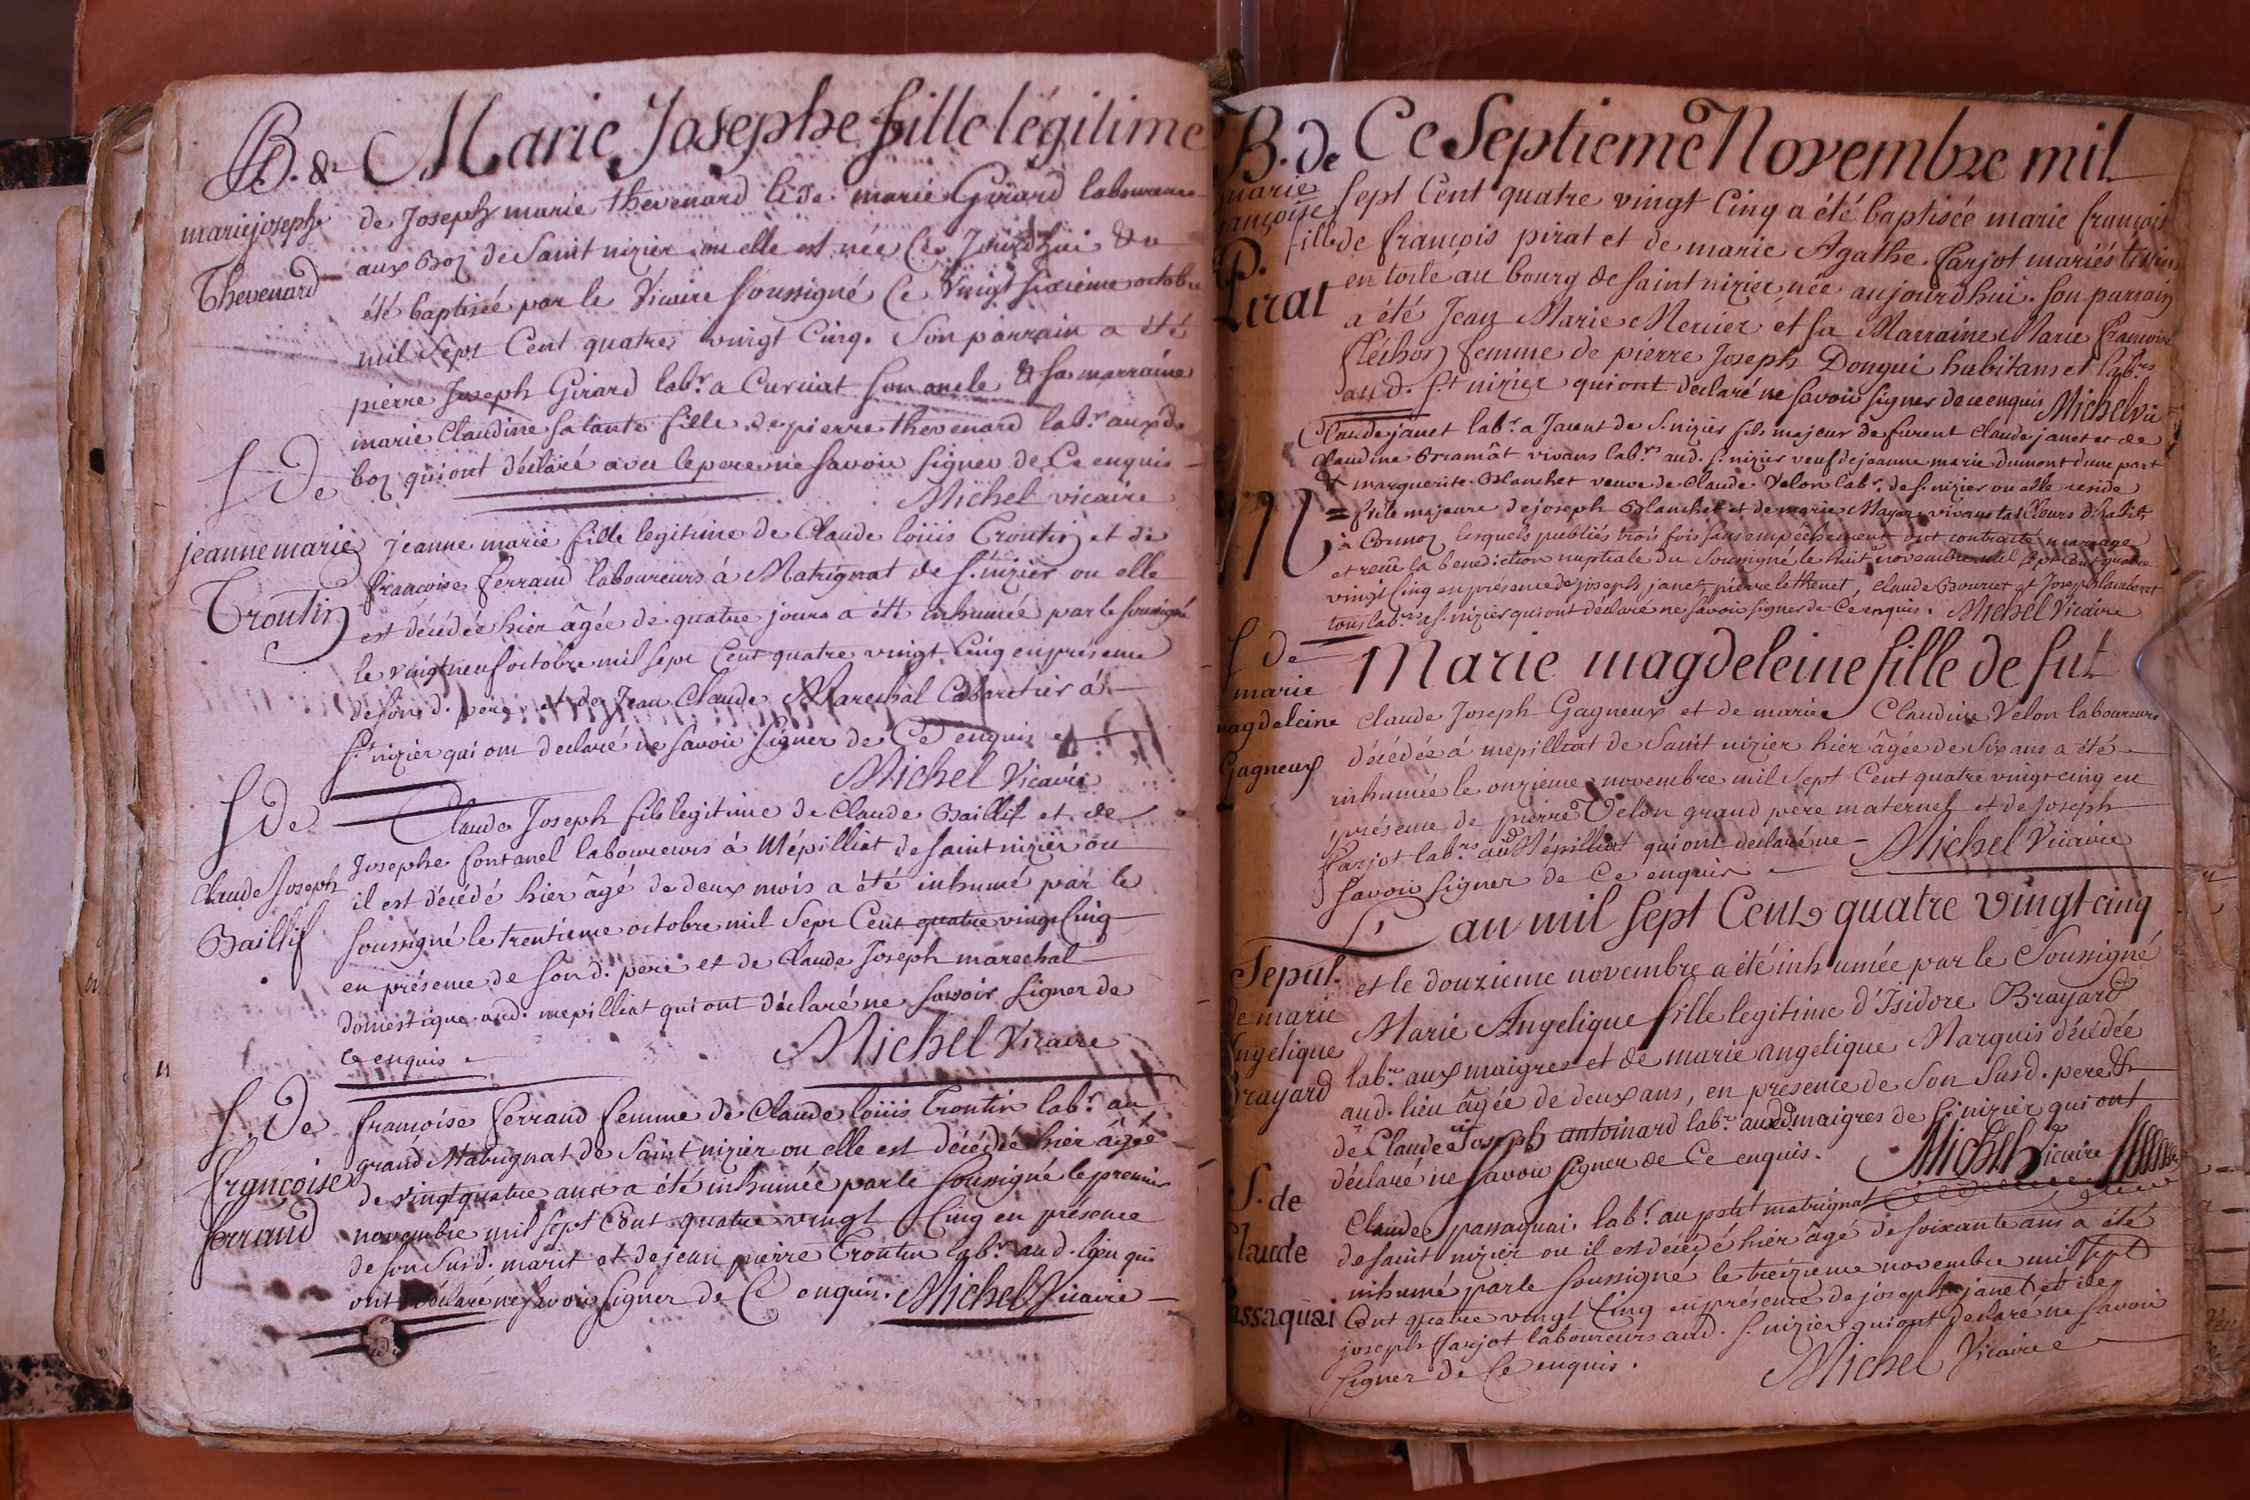 B. de Marie Josephe fille légitime
marie joseph
Thevenard
de Joseph marie thevenard & de marie Girard laboureurs
aux Boz de Saint nizier ou elle est née Ce Jourdhui & a
été baptisée par le Vicaire soussigné Ce Vingt sixième octobre
mil Sept Cent quatre vingt Cinq. Son parrain a été
pierre Joseph Girard labr. a Curciat son oncle & sa marraine
marie Claudine sa tante fille de pierre thevenard labr. aux d.
boz qui ont déclaré avec le pere ne savoir signer de Ce enquis
Michel vicaire
S De
jeanne marie
Troutin
jeanne marie fille legitime de Claude loüis Troutin et de
françoise ferraud laboureurs à Matrignat de St. nizier ou elle
est décédée hier âgée de quatre jours a été inhumée par le soussigné
le vingt neuf octobre mil sept Cent quatre vingt Cinq en présence
de son d. pere et de Jean Claude Marechal Cabaretier à
St. nizier qui ont declaré ne savoir signer de Ce enquis
Michel Vicaire
S De
Claude Joseph
Baillif
Claude Joseph fils legitime de Claude Baillif et de
Josephe fontanel laboureurs à Mépilliat de saint nizier ou
il est décédé hier âgé de deux mois a été inhumé par le
soussigné le trentieme octobre mil Sept Cent quatre vingt Cinq
en présence de son d. pere et de Claude Joseph marechal
domestique aud. mepilliat qui ont déclaré ne savoir signer de
ce enquis
Michel Vicaire
S. De
françoise
ferraud
françoise ferraud femme de Claude loüis Troutin labr. au
grand Matrignat de Saint nizier ou elle est décédée hier âgée
de vingt quatre ans a été inhumée par le soussigné le premier
novembre mil sept Cent quatre vingt Cinq en présence
de son Susd. marit et de jean pierre Troutin labr. aud. lieu qui
ont déclaré ne savoir signer de Ce enquis. Michel Vicaire
B. de Ce Septieme Novembre mil
marie
françoise
Pirat
sept Cent quatre vingt Cinq a été baptisée marie françoise
fille de françois pirat et de marie Agathe farjot mariés
en toile au bourg de saint nizier née aujourdhui. son parrain
a été Jean Marie Mercier et sa Marraine Marie françoise
femme de pierre Joseph Donqui habitans et labrs
aud. St nizier qui ont declaré ne savoir signer de ce enquis Michel vic
M
Claude janet labr. a Jarent de S. nizier fils majeur de furent Claude janet et de
Claudine Bramât vivans labrs aud. S. nizier veuf de jeanne marie dumont dune part
& marguerite Blanchet veuve de Claude Velon labr. de S. nizier ou elle reside
fille majeure de joseph Blanchet et de marie Mayer vivans tailleurs d'habits
à Cormoz lesquels publiés trois fois sans empêchement ont contracté mariage
et reçu la benediction nuptiale du soussigné le huit novembre mil sept Cent quatre
vingt Cinq en présence de joseph janet, pierre lethenet, Claude Bourcet et Joseph
tous labrs de S. nizier qui ont déclaré ne savoir signer de Ce enquis. Michel Vicaire
S de
marie
magdeleine
Gagneux
Marie magdeleine fille de fut
Claude Joseph Gagneux et de marie Claudine Velon laboureurs
décédée à mepilliat de Saint nizier hier âgée de six ans a été
inhumée le onzieme novembre mil Sept Cent quatre vingt cinq en
présence de pierre Velon grand pere maternel et de Joseph
farjot labrs. aud Mépilliat qui ont declaré ne
savoir signer de Ce enquis
Michel Vicaire
L'an mil sept Cent quatre vingt cinq
Sepul.
de marie
Angelique
Brayard
et le douzieme novembre a été inhumée par le Soussigné
Marie Angelique fille legitime d'Isidore Brayard
labr. aux maigres et de marie angelique Marquis décédée
aud. lieu âgée de deux ans, en presence de Son Susd. pere &
de Claude Joseph antoinard labr. auxd. maigres de S. nizier qui ont
déclaré ne savoir signer de Ce enquis. Michel Vicaire
S. de
Claude
passaquai
Claude passaquai labr. au petit matrignat
de saint nizier ou il est décédé hier âgé de soixante ans a été
inhumé par le soussigné le treizieme novembre mil sept
Cent quatre vingt Cinq en présence de joseph janet et de
joseph farjot laboureurs aud. S. nizier qui ont declaré ne savoir
signer de Ce enquis.
Michel Vicaire